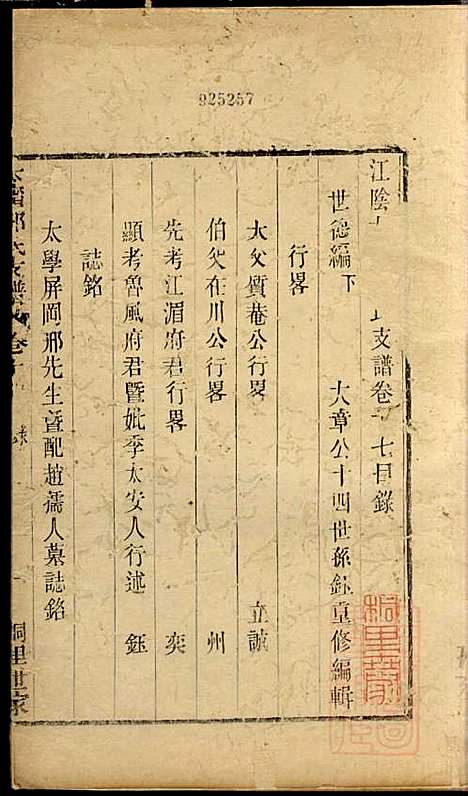 925257
江陰
支譜卷
七目錄
世德編下 大章公十四世孫鈺重修編輯
行畧
大父質菴公行畧 立誠
伯父在川公行畧 州
先考江湄府君行畧 奕
顯考魯風府君暨妣季太安人行述 鈺
誌銘
太學屏岡邢先生暨配趙孺人墓誌銘
氏支譜 卷
桐里世家